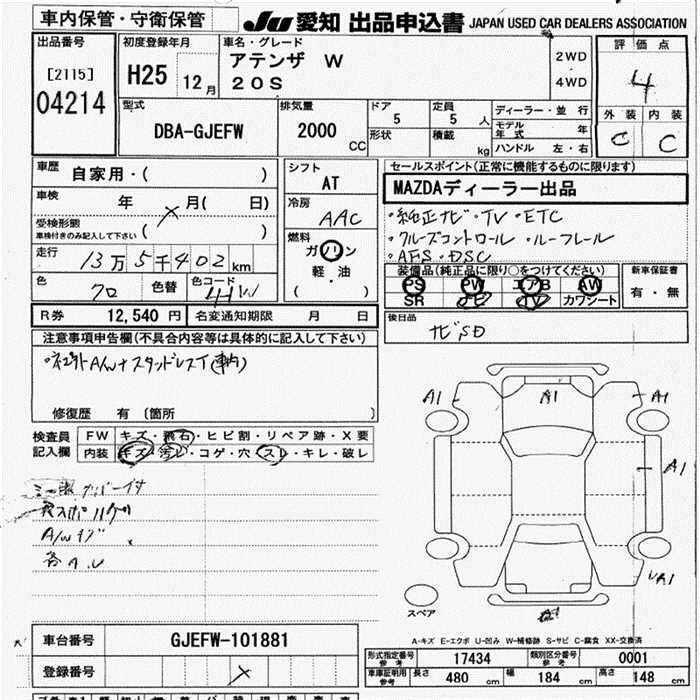 車内保管・守衛保管
JU 愛知 出品申込書 JAPAN USED CAR DEALERS ASSOCIATION
出品番号
[2115]
04214
初度登録年月
H25 12月
車名・グレード
アテンザ W
20S
2WD
4WD
評価点
4
外装 内装
C C
型式
DBA-GJEFW
排気量
2000 CC
ドア
5
形状
定員
5 人
積載
kg
ディーラー・並行
モデル年式 年
ハンドル 左・右
車歴
自家用・( )
車検
年 月( 日)
受検形態
車検付きのみ記入して下さい ( )
走行
13万5千402km
色
クロ
色替
色コード
41W
シフト
AT
冷房
AAC
燃料
ガソリン
軽・油
( )
セールスポイント(正常に機能するものに限ります)
MAZDAディーラー出品
・純正ナビ・TV・ETC
・クルーズコントロール・ルーフレール
・AFS・DSC
装備品(純正品に限り○をつけてください)
PS PW エアB AW
SR ナビ TV カワシート
新車保証書
有・無
R券 12,540 円 名変通知期限 月 日
後日品
ナビSD
注意事項申告欄(不具合内容等は具体的に記入して下さい)
修復歴 有 (箇所 )
検査員
記入欄
FW キズ・飛石・ヒビ割・リペア跡・X要
内装 キズ・汚レ・コゲ・穴・スレ・キレ・破レ
A1
A1
A1
A1
A1
スペア
A-キズ E-エクボ U-凹み W-補修跡 S-サビ C-腐食 XX-交換済
車台番号 GJEFW-101881
登録番号
形式指定番号 参考 17434
類別区分番号 参考 0001
車庫証明用 参考 長さ 480 cm 幅 184 cm 高さ 148 cm